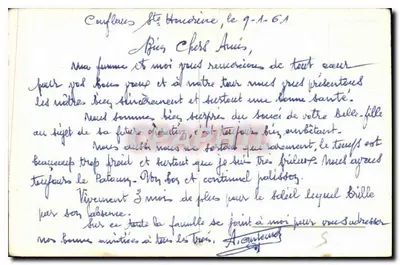 Conflans Ste Honorine, le 9-1-61
Bien Chers Amis,
Ma femme et moi vous remercions de tout cœur
pour vos bons vœux et à notre tour nous vous présentons
les nôtres bien sincèrement et surtout une bonne santé.
Nous sommes bien surpris du souci de votre belle-fille
au sujet de sa bien embêtant.
Nous aussi nous ne sortons que rarement, le temps est
beaucoup trop froid et surtout que je suis très frileux nous avons
toujours le et continuel
Vivement 3 mois de plus pour le soleil lequel brille
par son absence.
Sur ce toute la famille se joint à moi pour vous adresser
nos bonnes amitiés à tous les trois.
5